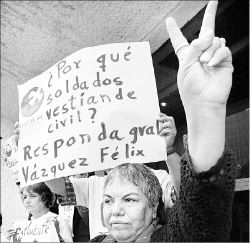 ¿Por qué
soldados
vestian de
civil?
Responda gral
Vázquez Félix